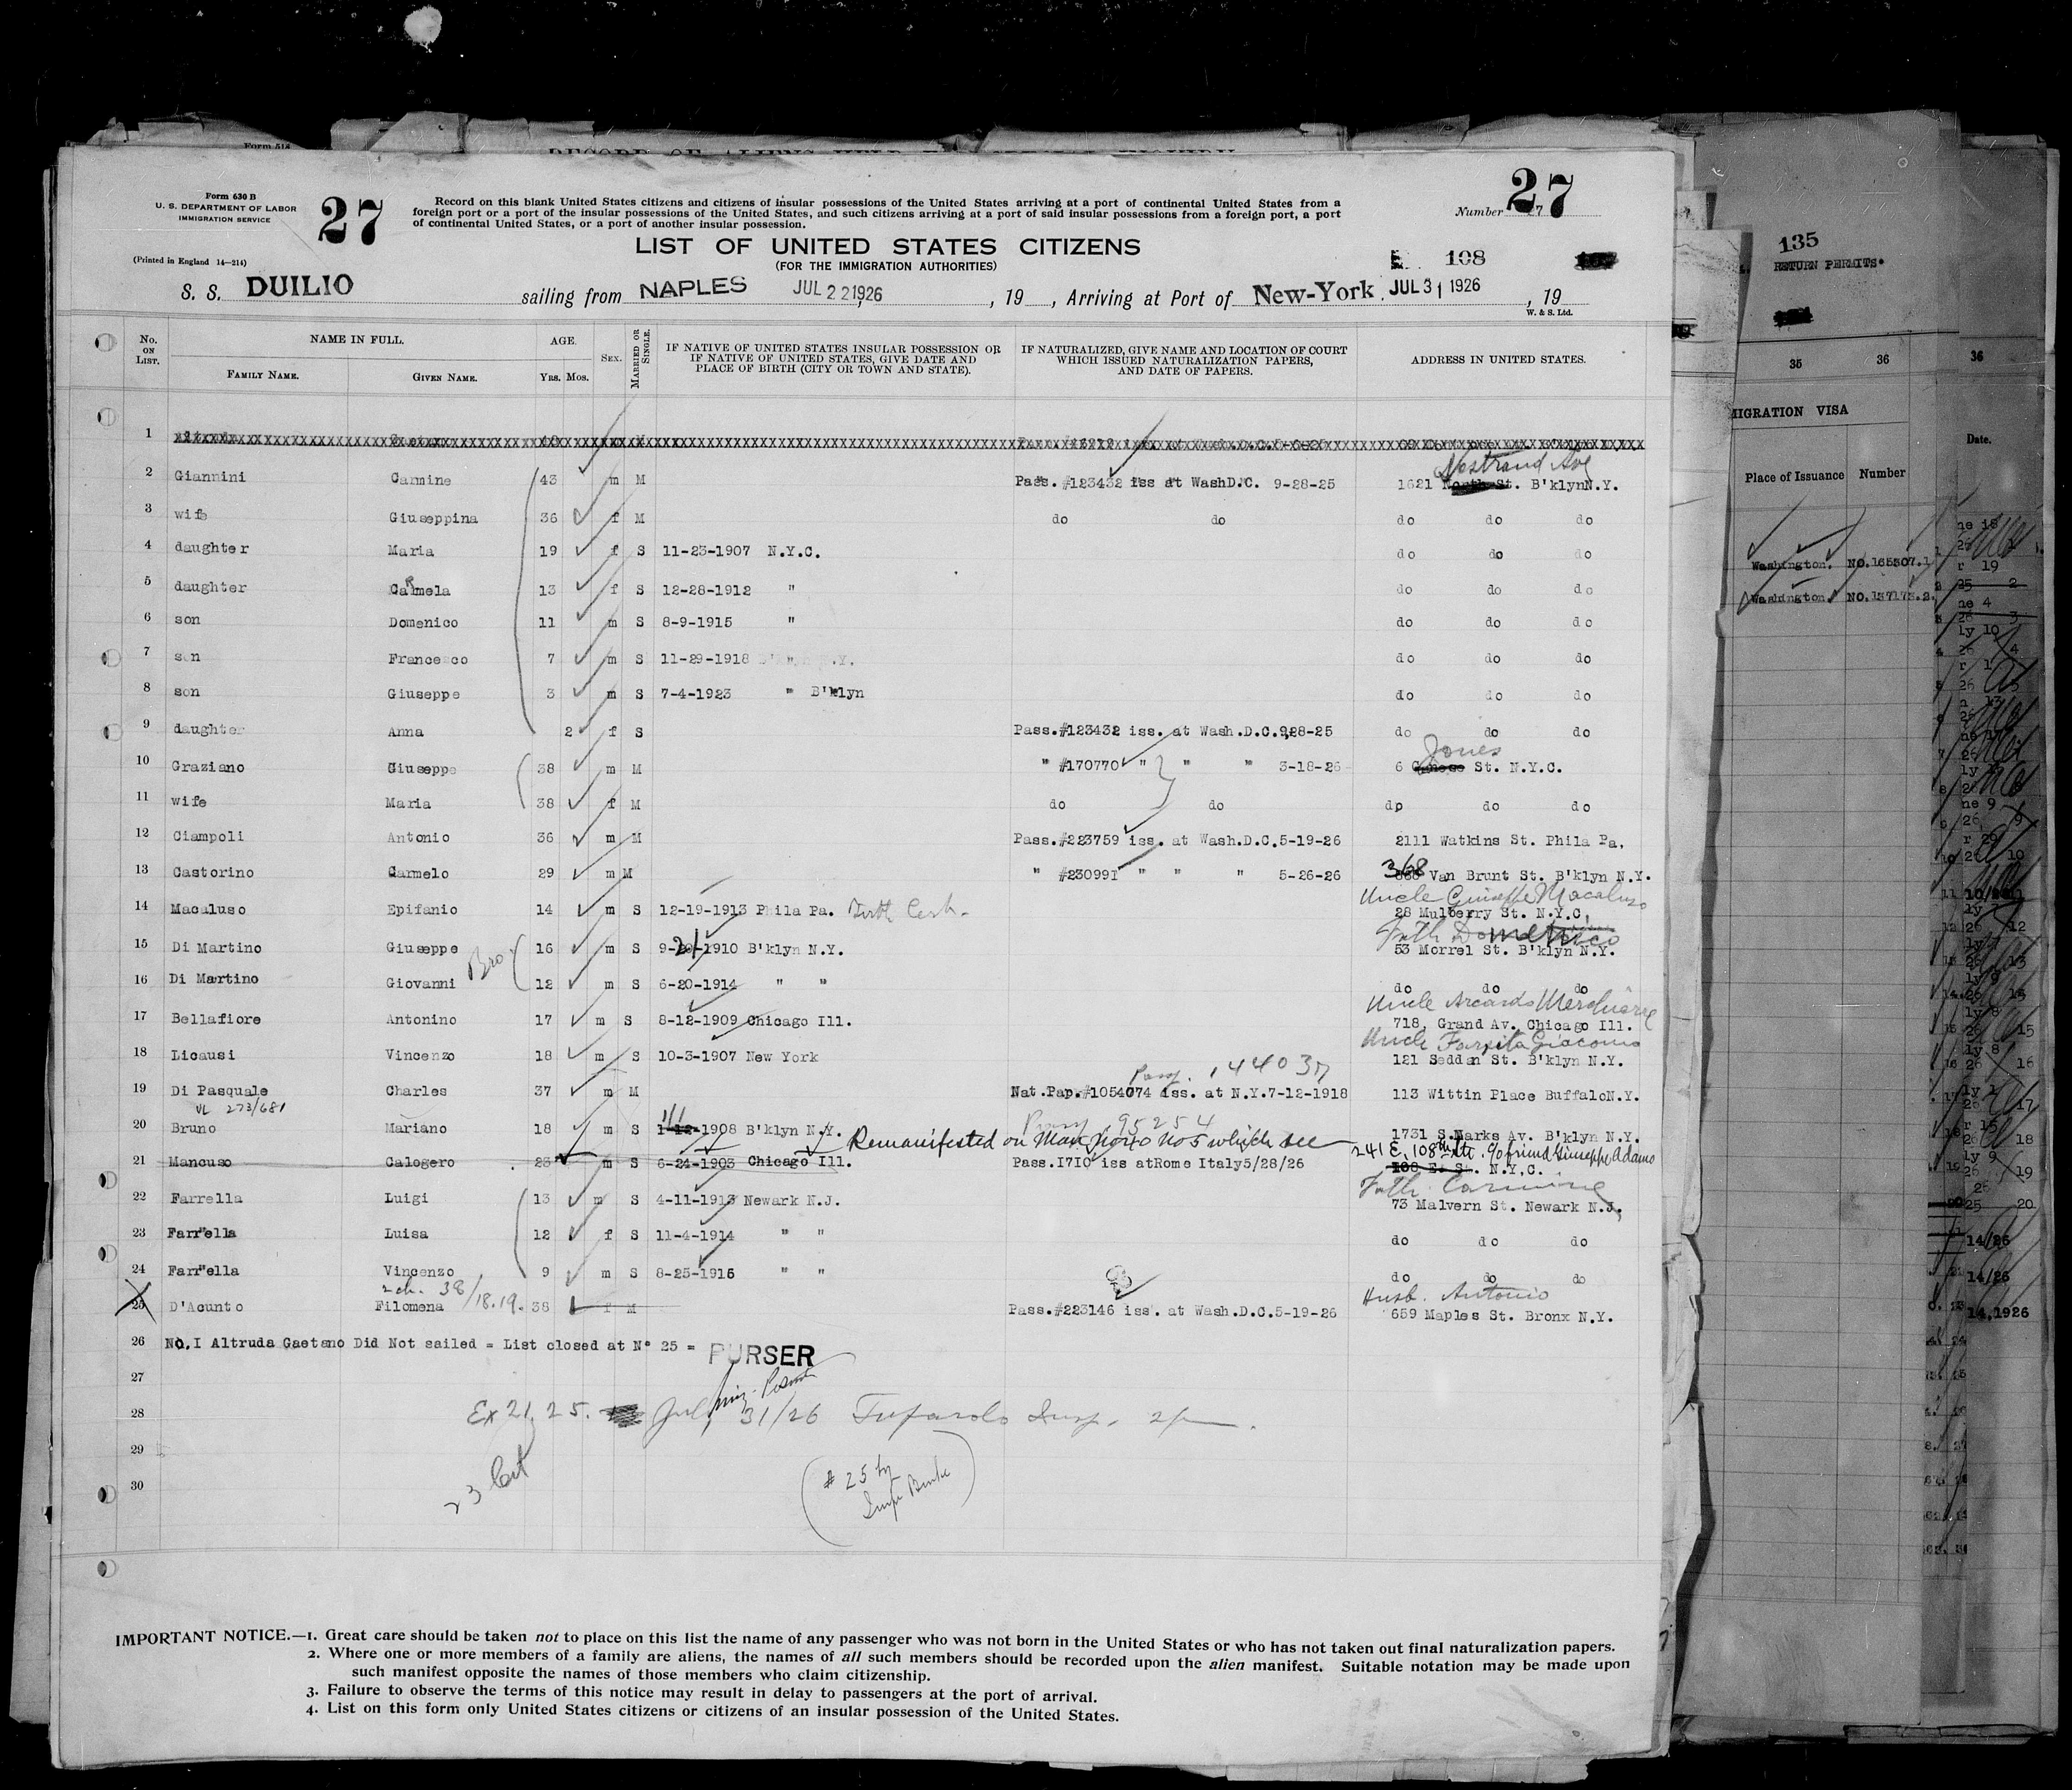 Form 630 B
U. S. DEPARTMENT OF LABOR
IMMIGRATION SERVICE
27
Record on this blank United States citizens and citizens of insular possessions of the United States arriving at a port of continental United States from a
foreign port or a port of the insular possessions of the United States, and such citizens arriving at a port of said insular possessions from a foreign port, a port
of continental United States, or a port of another insular possession.
Number 27
LIST OF UNITED STATES CITIZENS
(FOR THE IMMIGRATION AUTHORITIES)
108
(Printed in England 14—214)
S. S. DUILIO sailing from NAPLES JUL 22 1926, 19 , Arriving at Port of New-York JUL 31 1926, 19
W. & S. Ltd.
No. ON LIST. NAME IN FULL. FAMILY NAME. GIVEN NAME. AGE. YRS. MOS. SEX. MARRIED OR SINGLE. IF NATIVE OF UNITED STATES INSULAR POSSESSION OR IF NATIVE OF UNITED STATES, GIVE DATE AND PLACE OF BIRTH (CITY OR TOWN AND STATE). IF NATURALIZED, GIVE NAME AND LOCATION OF COURT WHICH ISSUED NATURALIZATION PAPERS, AND DATE OF PAPERS. ADDRESS IN UNITED STATES.
1
Nostrand Ave
2 Giannini Carmine 43 m M Pass. #123432 iss at WashD.C. 9-28-25 1621 St. B'klynN.Y.
3 wife Giuseppina 36 f M do do do do do
4 daughter Maria 19 f S 11-23-1907 N.Y.C. do do do
5 daughter Carmela 13 f S 12-28-1912 " do do do
6 son Domenico 11 m S 8-9-1915 " do do do
7 son Francesco 7 m S 11-29-1918 " do do do
8 son Giuseppe 3 m S 7-4-1923 " B'klyn do do do
9 daughter Anna 2 f S Pass.#123432 iss. at Wash.D.C.928-25 do do do
Jones
10 Graziano Giuseppe 38 m M " #170770 " " " 3-18-26 6 St. N.Y.C.
11 wife Maria 38 f M do do do do do
12 Ciampoli Antonio 36 m M Pass.#223759 iss. at Wash.D.C.5-19-26 2111 Watkins St. Phila Pa.
13 Castorino Carmelo 29 m M " #230991 " " " 5-26-26 368 Van Brunt St. B'klyn N.Y.
Uncle Giuseppe Macaluso
14 Macaluso Epifanio 14 m S 12-19-1913 Phila Pa. Birth Cert. 28 Mulberry St. N.Y.C.
Fath Domenico
15 Di Martino Giuseppe 16 m S 9-21-1910 B'klyn N.Y. 53 Morrel St. B'klyn N.Y.
Bro
16 Di Martino Giovanni 12 m S 6-20-1914 " " do do do
Uncle
17 Bellafiore Antonino 17 m S 8-12-1909 Chicago Ill. 718, Grand Av. Chicago Ill.
Uncle Giacomo
18 Licausi Vincenzo 18 m S 10-3-1907 New York 121 Seddan St. B'klyn N.Y.
Pass. 144037
19 Di Pasquale Charles 37 m M Nat.Pap.#1054074 iss. at N.Y.7-12-1918 113 Wittin Place BuffaloN.Y.
VL 273/681
Pass 95254
20 Bruno Mariano 18 m S 1/1 -1908 B'klyn N.Y. 1731 S.Marks Av. B'klyn N.Y.
Remanifested on No 5 which see
241 E. 108th St. c/o friend Giuseppe Adamo
21 Mancuso Calogero 23 m S 6-24-1903 Chicago Ill. Pass.1710 iss atRome Italy5/28/26 108 E. St. N.Y.C.
Fath. Carmine
22 Farrella Luigi 13 m S 4-11-1913 Newark N.J. 73 Malvern St. Newark N.J.
23 Farr"ella Luisa 12 f S 11-4-1914 " " do do do
24 Farr"ella Vincenzo 9 m S 8-25-1916 " " do do do
38/18.19.
Husb. Antonio
25 D'Acunto Filomena 38 f M Pass.#223146 iss. at Wash.D.C.5-19-26 659 Maples St. Bronx N.Y.
26 No.I Altruda Gaetano Did Not sailed = List closed at N° 25 = PURSER
27
28 Ex 21, 25. July 31/26 Insp.
29
23 Cert
(#25 by
Insp Burke)
30
IMPORTANT NOTICE.—1. Great care should be taken not to place on this list the name of any passenger who was not born in the United States or who has not taken out final naturalization papers.
2. Where one or more members of a family are aliens, the names of all such members should be recorded upon the alien manifest. Suitable notation may be made upon
such manifest opposite the names of those members who claim citizenship.
3. Failure to observe the terms of this notice may result in delay to passengers at the port of arrival.
4. List on this form only United States citizens or citizens of an insular possession of the United States.
135
RETURN PERMITS.
35 36
MIGRATION VISA
Place of Issuance Number
Washington. NO.165507.1
Washington. NO.137173.2.
36
Date.
14/26
14/26
14,1926